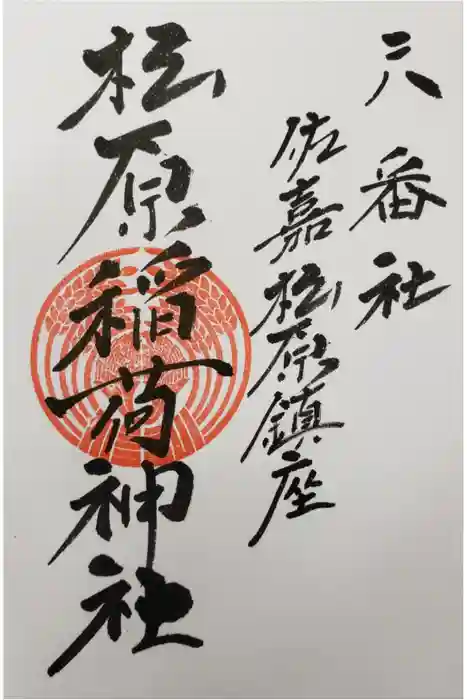 三八番社
佐嘉松原鎮座
松原稲荷神社